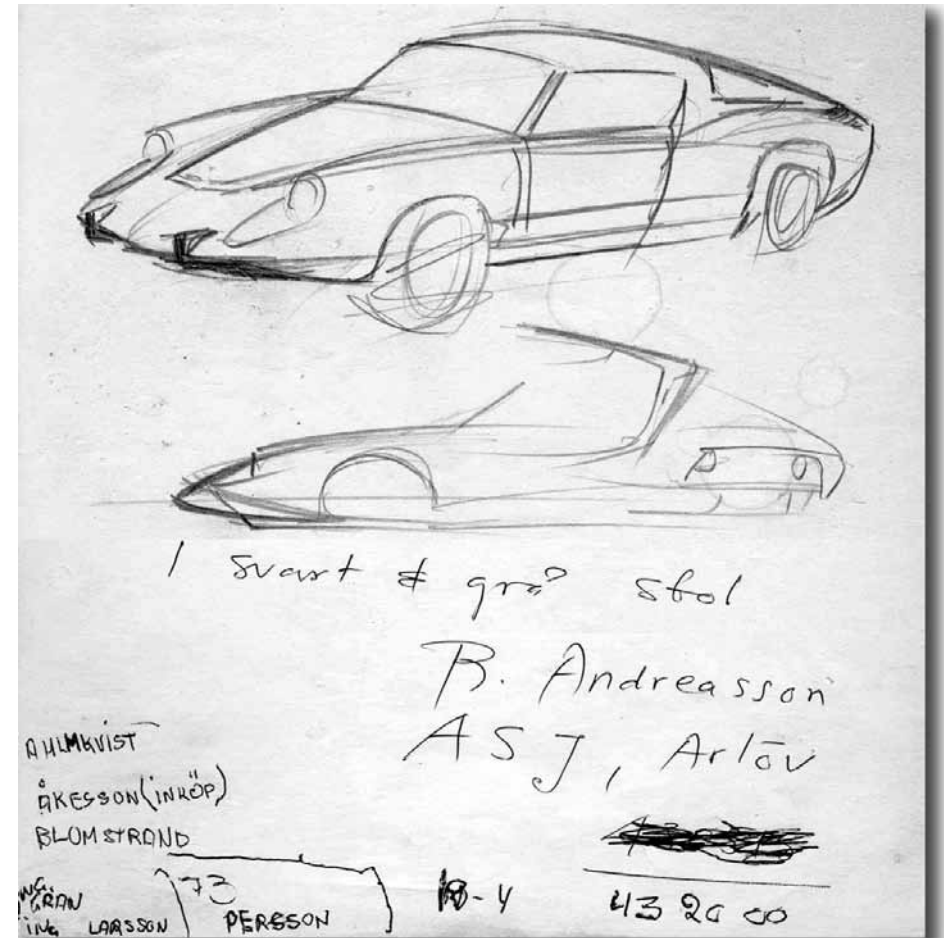 1 svart & grå stol
B. Andreasson
ASJ, Arlöv
AHLMKVIST
ÅKESSON (INKÖP)
BLOMSTRAND
73
ING LARSSON
PERSSON
-4
43 20 00